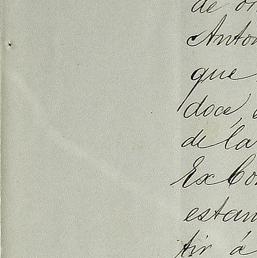 de
Anton
que
doce
de la
Ex Co
estan
tir á